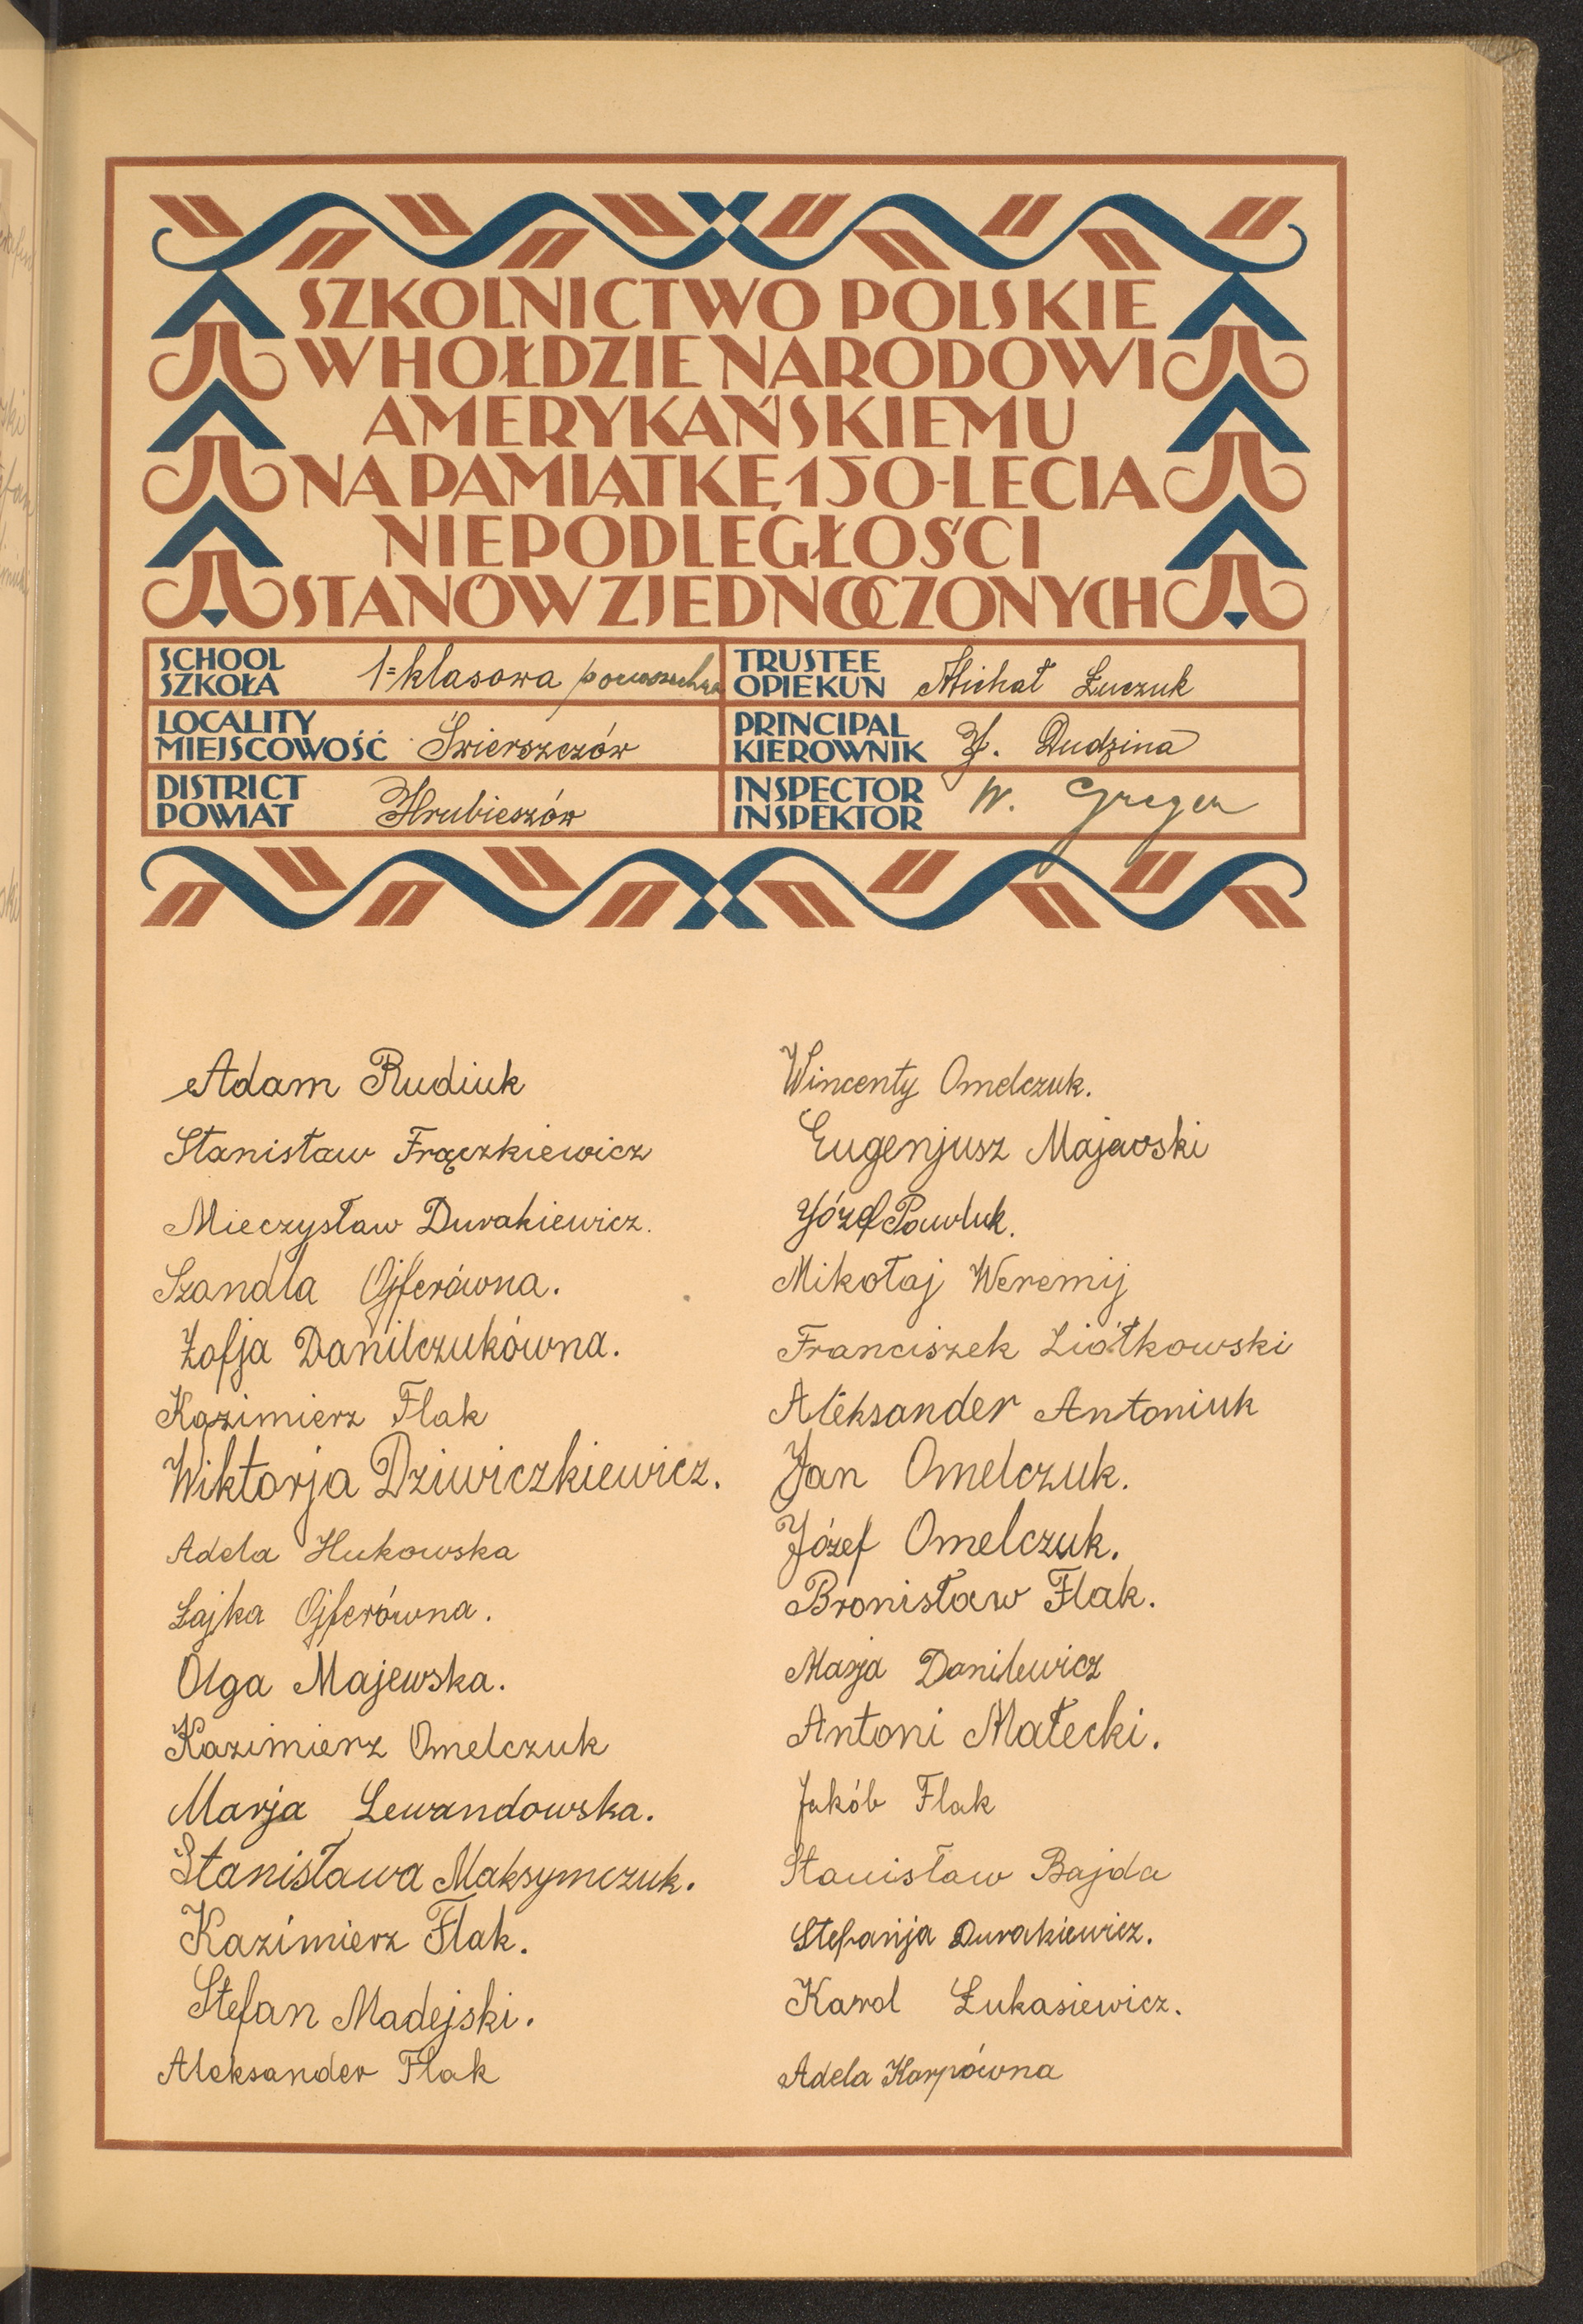 SZKOLNICTWO POLSKIE
W HOŁDZIE NARODOWI
AMERYKAŃSKIEMU
NA PAMIĄTKĘ 150-LECIA
NIEPODLEGŁOŚCI
STANÓW ZJEDNOCZONYCH
SCHOOL
SZKOŁA
1-klasowa powszechna
TRUSTEE
OPIEKUN
Michał Łuczuk
LOCALITY
MIEJSCOWOŚĆ
Świerszczów
PRINCIPAL
KIEROWNIK
J. Dudzina
DISTRICT
POWIAT
Hrubieszów
INSPECTOR
INSPEKTOR
W. Greger
Adam Rudiuk
Stanisław Frączkiewicz
Mieczysław Durakiewicz.
Szandla Ojferówna.
Zofja Danilczukówna.
Kazimierz Flak
Wiktorja Dziwiczkiewicz.
Adela Hukowska
Łajka Ojferówna.
Olga Majewska.
Kazimierz Omelczuk
Marja Lewandowska.
Stanisława Maksymczuk.
Kazimierz Flak.
Stefan Madejski.
Aleksander Flak
Wincenty Omelczuk.
Eugenjusz Majewski
Józef Pawluk.
Mikołaj Weremij
Franciszek Ziółkowski
Aleksander Antoniuk
Jan Omelczuk.
Józef Omelczuk.
Bronisław Flak.
Marja Danilewicz
Antoni Małecki.
Jakób Flak
Stanisław Bajda
Stefanja Durakiewicz.
Karol Łukasiewicz.
Adela Karpówna